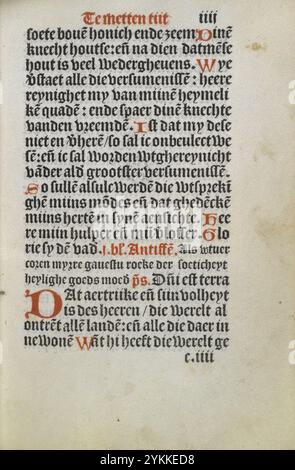 Te metten tiit iiij
soete bouē honich ende zeem Dinē
knecht houtse: eñ na dien datmēse
hout is veel wedergheuens. Wye
v̄staet alle die versumenissē: heere
reynighet my van miinē heymeli
kē quadē: ende spaer dinē knechte
vanden vreemdē. Ist dat my dese
niet en v̄herē/so sal ic onbeulect we
sē: eñ ic sal wordē wtghereynicht
vāder ald̄ grootster versumenissē.
So sullē alsulc werdē die wtsprekī
ghē miins mōds eñ dat ghedēckē
miins hertē in synē aensichte. Hee
re miin hulper eñ mii v̄losser. Glo
rie sy dē vad̄. j. bl. Antiffē. Als wtuer
coren myrre gauestu roeke der soeticheyt
heylighe gods moed̄ p̄s. Dñi est terra
Dat aertrijke eñ siin volheyt
is des heeren/die werelt al
ontrēt allē landē: eñ alle die daer in
ne wonē Wāt hi heeft die werelt ge
c.iiij
alamy
Image ID: 2YKKED8
www.alamy.com